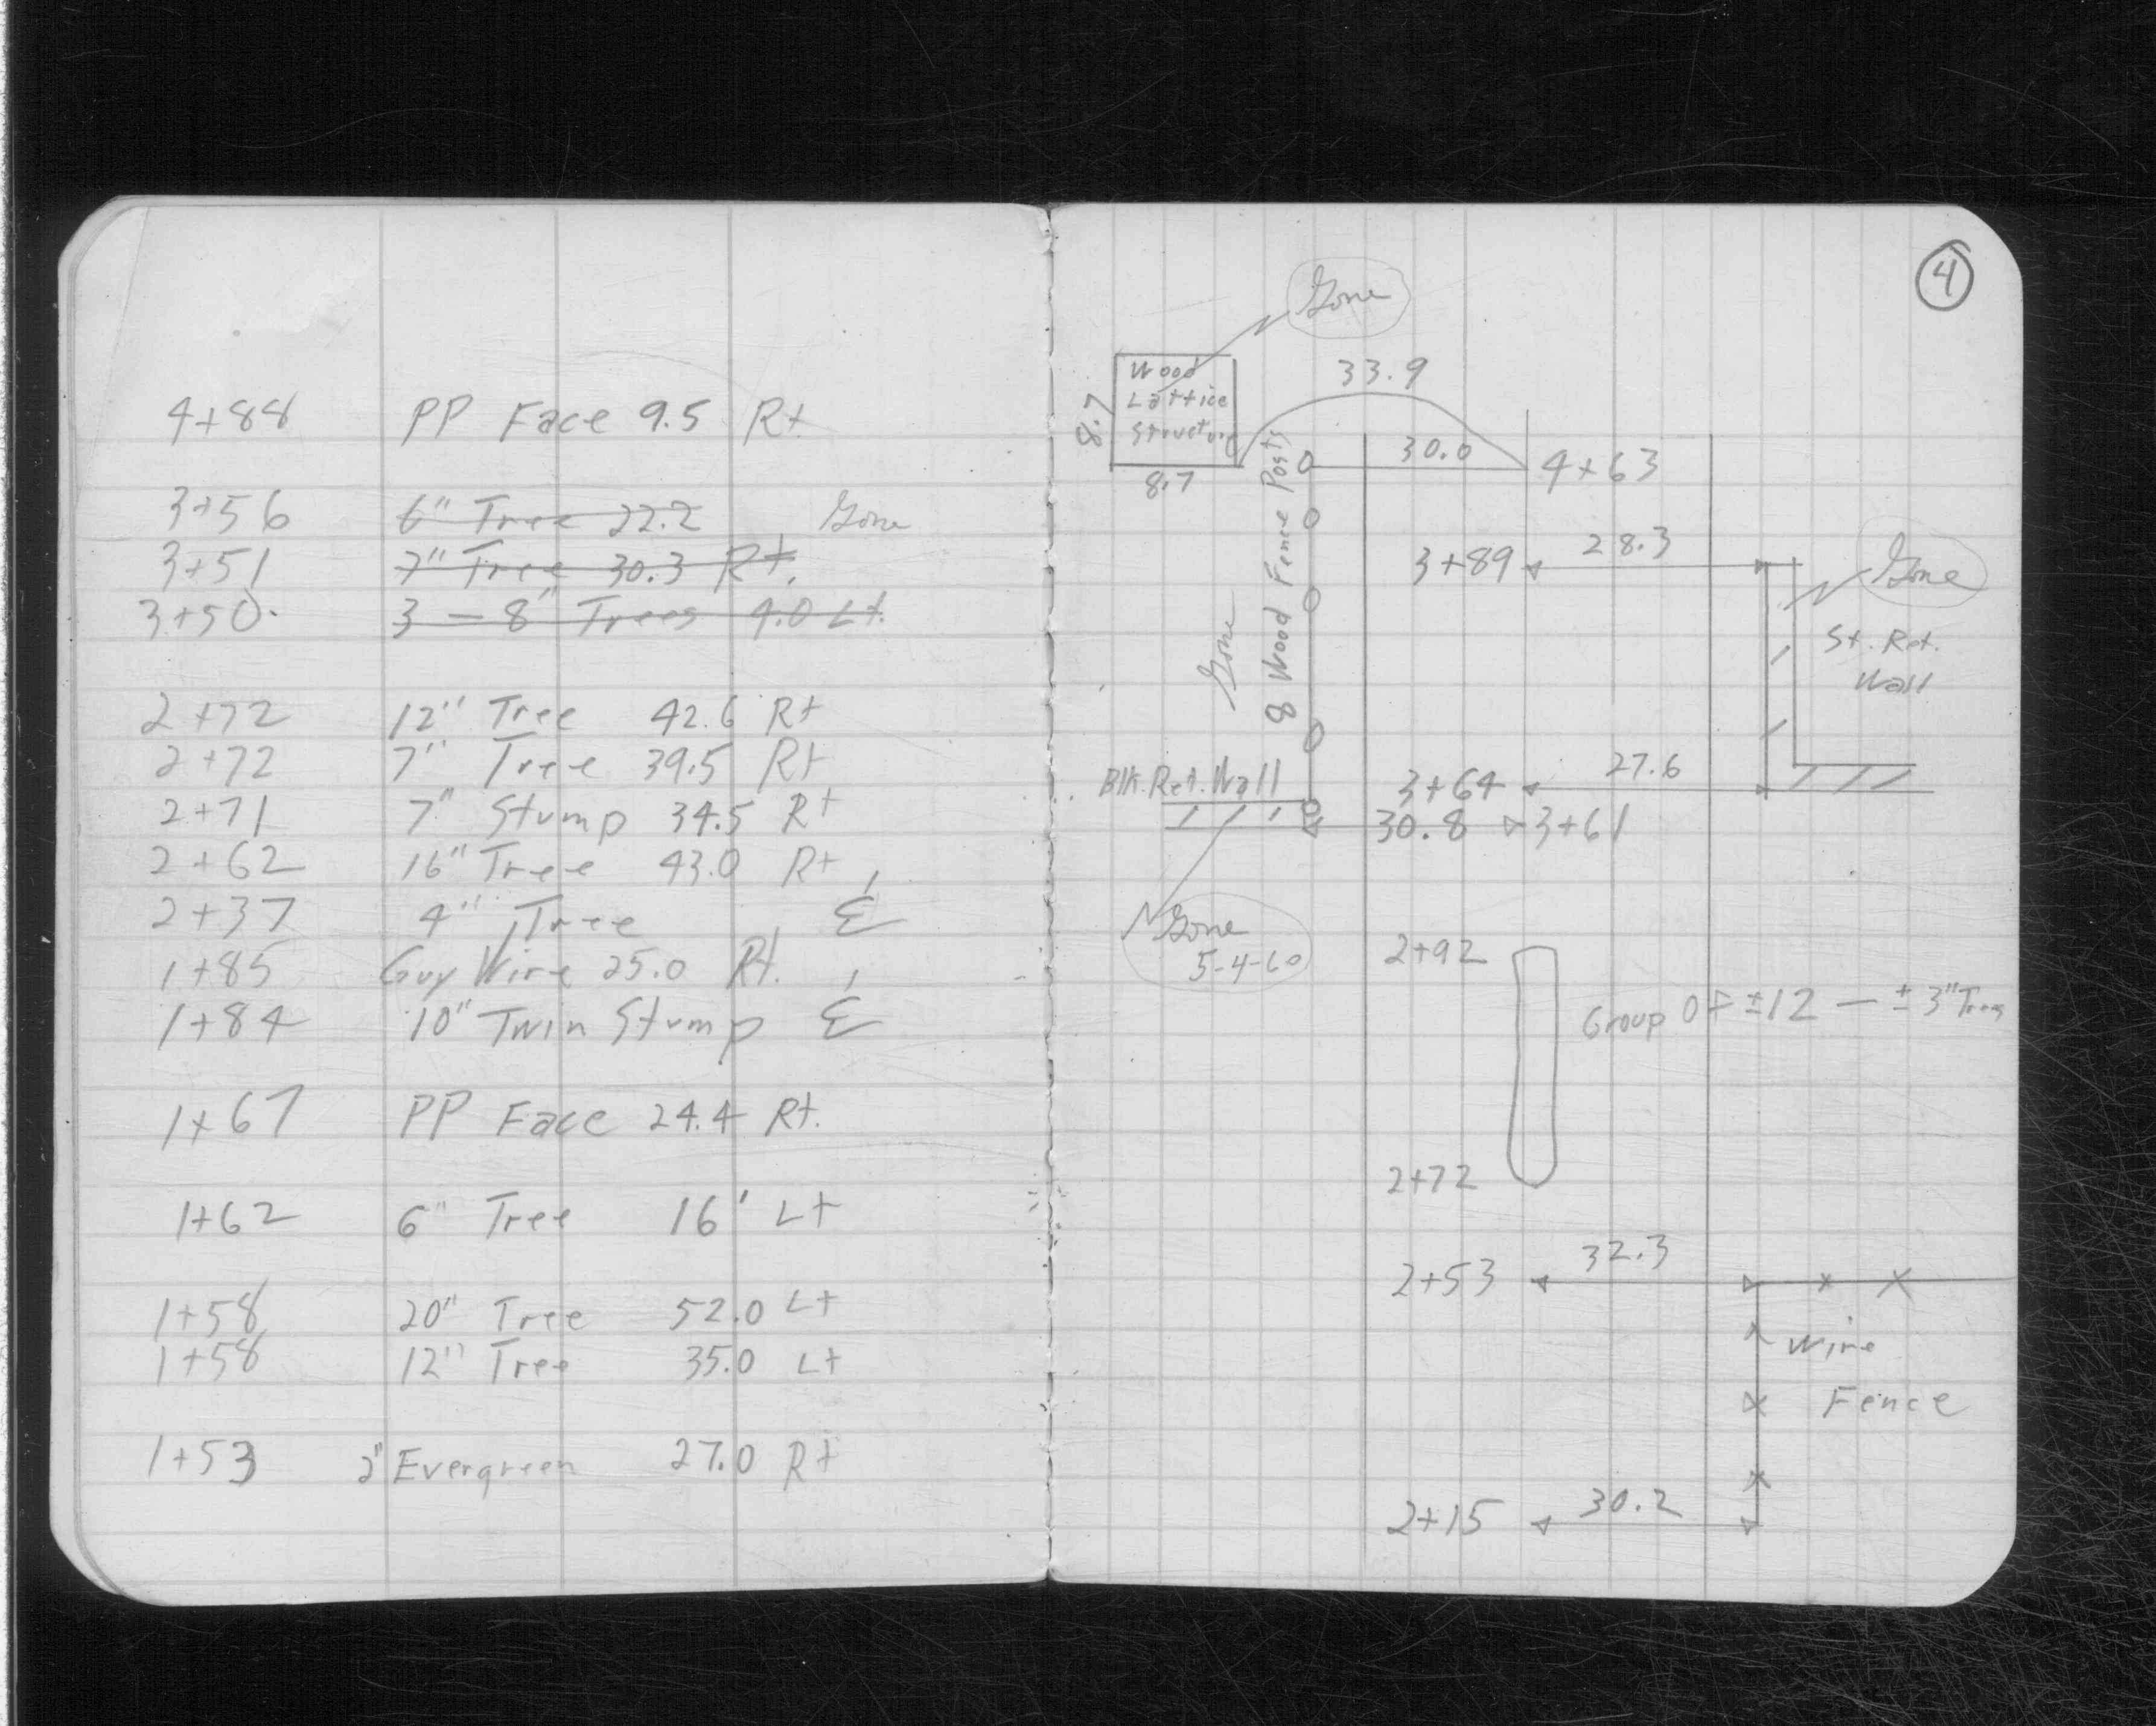 4+88 PP Face 9.5 Rt
3+56 6" Tree 22.2 Gone
3+51 7" Tree 30.3 Rt.
3+50. 3 — 8" Trees 4.0 Lt.
2+72 12" Tree 42.6 Rt
2+72 7" Tree 39.5 Rt
2+71 7" Stump 34.5 Rt
2+62 16" Tree 43.0 Rt
2+37 4" Tree
1+85 Guy Wire 25.0 Rt.
1+84 10" Twin Stump
1+67 PP Face 24.4 Rt.
1+62 6" Tree 16' Lt
1+58 20" Tree 52.0 Lt
1+58 12" Tree 35.0 Lt
1+53 2" Evergreen 27.0 Rt
4
Gone
33.9
Wood
Lattice
Structure
8.7
8.7
30.0 4+63
8 Wood Fence Posts
Gone
3+89 28.3
Gone
St. Ret.
Wall
Blk. Ret. Wall
3+64 27.6
30.8 3+61
Gone
5-4-60
2+92
Group Of ±12 — ±3" Trees
2+72
2+53 32.3
Wire
Fence
2+15 30.2